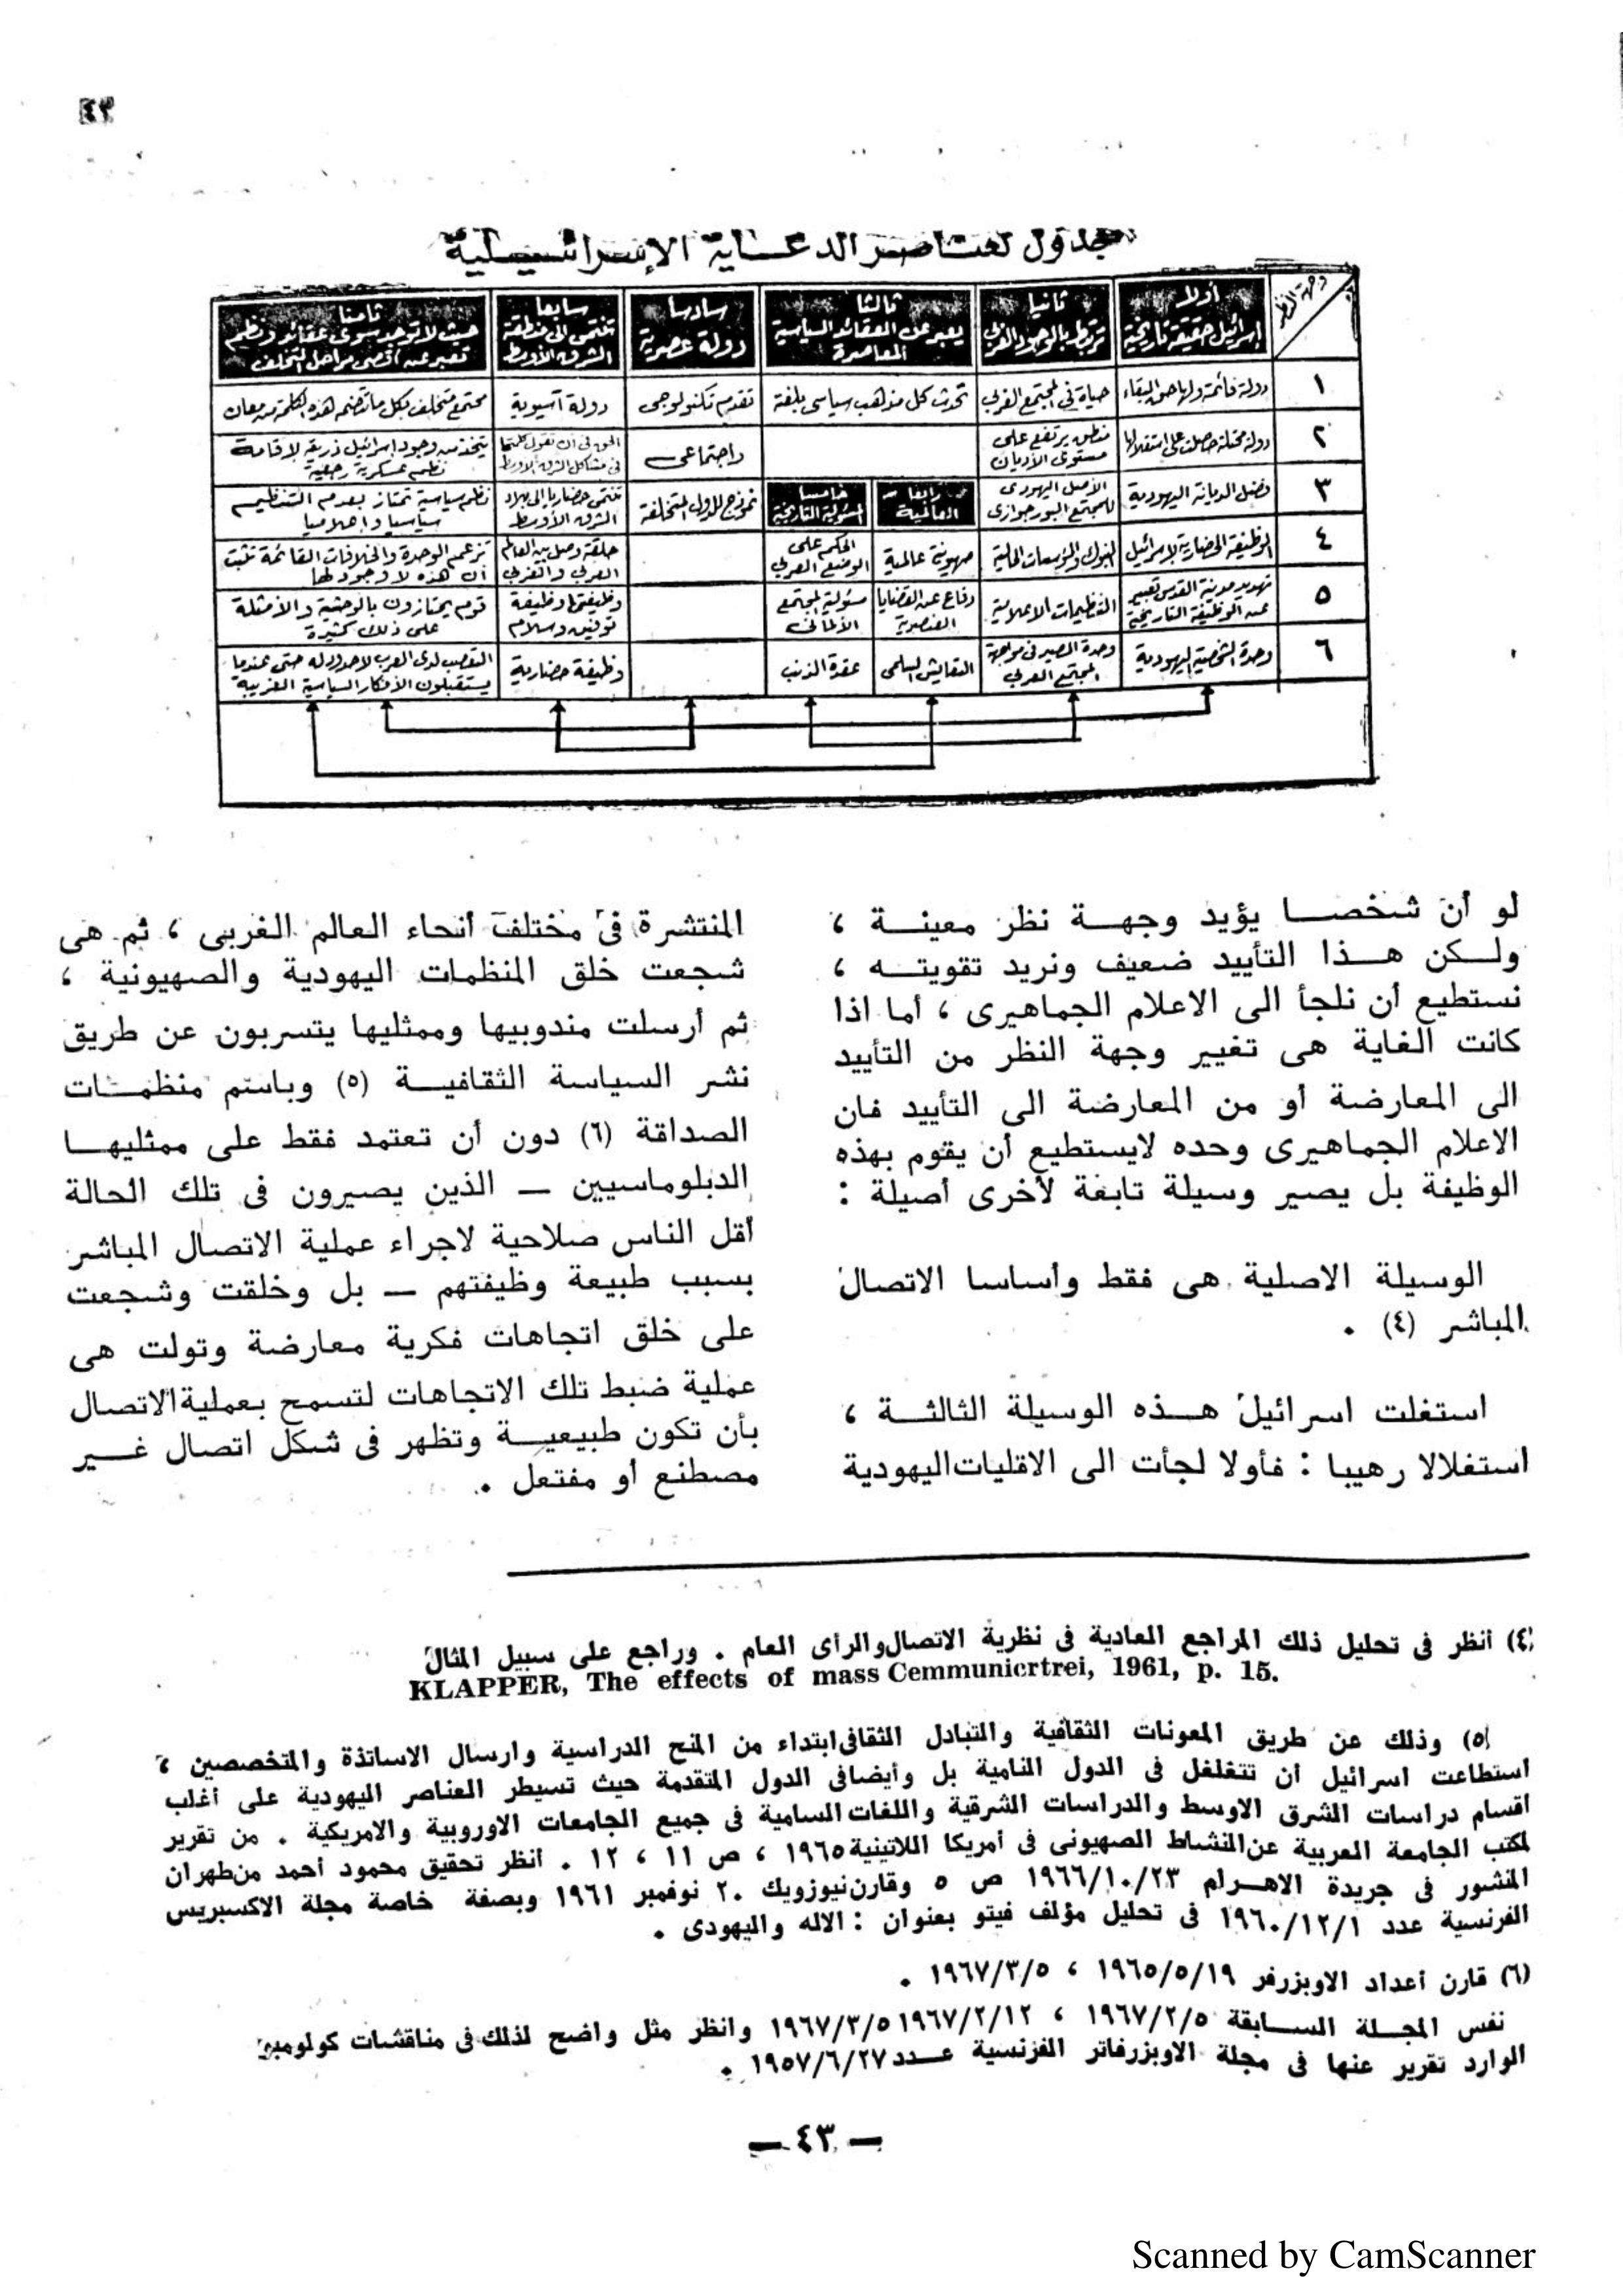 ٤٣
جدول لعناصر الدعاية الإسرائيلية
وجهة النظر
أولا
إسرائيل حقيقة تاريخية
ثانيا
ترتبط بالوجود الغربي
ثالثا
يعبر عن العقائد السياسية
المعاصرة
سادسا
دولة عصرية
سابعا
تنتمى الى منطقة
الشرق الأوسط
ثامنا
حيث لا توجد سوى عقائد ونظم
تعبر عن أقصى مراحل التخلف
١
دولة قائمة ولها حق البقاء
حياة في المجتمع الغربي
تحدث كل مذهب سياسى بلغته
تقدم تكنولوجى
دولة آسيوية
مجتمع متخلف بكل ما تتضمنه هذه الكلمة من معان
٢
دولة محتلة حصلت على استقلالها
منطق يرتفع على
مستوى الأديان
واجتماعى
الحق فى أن تقول كلمتها
فى مشاكل الشرق الأوسط
يتخذ من وجود اسرائيل ذريعة لإقامة
نظم عسكرية رجعية
٣
فضل الديانة اليهودية
الأصل اليهودى
للمجتمع البورجوازى
رابعا
العالمية
خامسا
المسئولية التاريخية
نموذج للدول المتخلفة
تنتمى حضاريا إلى بلاد
الشرق الأوسط
نظم سياسية تمتاز بعدم التنظيم
سياسيا وإعلاميا
٤
الوظيفة الحضارية لإسرائيل
البنوك والمؤسسات المالية
صهيونية عالمية
الحكم على
الوضع العربي
حلقة وصل بين العالم
العربي والغربي
تزعم الوحدة والخلافات القائمة تثبت
أن هذه لا وجود لها
٥
تهويد مدينة القدس تعبير
عن الوظيفة التاريخية
التنظيمات الإعلامية
دفاع عن القضايا
العنصرية
مسئولية المجتمع
الألمانى
وظيفتها وظيفة
توفيق وسلام
قوم يمتازون بالوحشية والأمثلة
على ذلك كثيرة
٦
وحدة الشخصية اليهودية
وحدة المصير فى مواجهة
المجتمع العربي
التعايش السلمى
عقدة الذنب
وظيفة حضارية
التعصب لدى العرب لا حدود له حتى عندما
يستقبلون الأفكار السياسية الغربية
لو أن شخصــا يؤيد وجهــة نظر معينــة ،
ولــكن هــذا التأييد ضعيف ونريد تقويتــه ،
نستطيع أن نلجأ الى الاعلام الجماهيرى ، أما اذا
كانت الغاية هى تغيير وجهة النظر من التأييد
الى المعارضة أو من المعارضة الى التأييد فان
الاعلام الجماهيرى وحده لايستطيع أن يقوم بهذه
الوظيفة بل يصير وسيلة تابعة لأخرى أصيلة :
الوسيلة الاصلية هى فقط وأساسا الاتصال
المباشر (٤) .
استغلت اسرائيل هــذه الوسيلة الثالثــة ،
استغلالا رهيبا : فأولا لجأت الى الاقليات اليهودية
المنتشرة فى مختلف أنحاء العالم الغربى ، ثم هى
شجعت خلق المنظمات اليهودية والصهيونية ،
ثم أرسلت مندوبيها وممثليها يتسربون عن طريق
نشر السياسة الثقافيــة (٥) وباسم منظمــات
الصداقة (٦) دون أن تعتمد فقط على ممثليهــا
الدبلوماسيين ــ الذين يصيرون فى تلك الحالة
أقل الناس صلاحية لاجراء عملية الاتصال المباشر
بسبب طبيعة وظيفتهم ــ بل وخلقت وشجعت
على خلق اتجاهات فكرية معارضة وتولت هى
عملية ضبط تلك الاتجاهات لتسمح بعملية الاتصال
بأن تكون طبيعيــة وتظهر فى شكل اتصال غــير
مصطنع أو مفتعل .
(٤) أنظر فى تحليل ذلك المراجع العادية فى نظرية الاتصال والرأى العام . وراجع على سبيل المثال
KLAPPER, The effects of mass Cemmunicrtrei, 1961, p. 15.
(٥) وذلك عن طريق المعونات الثقافية والتبادل الثقافى ابتداء من المنح الدراسية وارسال الاساتذة والمتخصصين ،
استطاعت اسرائيل أن تتغلغل فى الدول النامية بل وأيضا فى الدول المتقدمة حيث تسيطر العناصر اليهودية على أغلب
اقسام دراسات الشرق الاوسط والدراسات الشرقية واللغات السامية فى جميع الجامعات الاوروبية والامريكية . من تقرير
لمكتب الجامعة العربية عن النشاط الصهيونى فى أمريكا اللاتينية ١٩٦٥ ، ص ١١ ، ١٢ . أنظر تحقيق محمود أحمد من طهران
المنشور فى جريدة الاهــرام ١٩٦٦/١٠/٢٣ ص ٥ وقارن نيوزويك ٢٠ نوفمبر ١٩٦١ وبصفة خاصة مجلة الاكسبريس
الفرنسية عدد ١٩٦٠/١٢/١ فى تحليل مؤلف فيتو بعنوان : الاله واليهودى .
(٦) قارن أعداد الاوبزرفر ١٩٦٥/٥/١٩ ، ١٩٦٧/٣/٥ .
نفس المجــلة الســابقة ١٩٦٧/٢/٥ ، ١٩٦٧/٢/١٢ ١٩٦٧/٣/٥ وانظر مثل واضح لذلك فى مناقشات كولومبو
الوارد تقرير عنها فى مجلة الاوبزرفاتر الفرنسية عــدد ١٩٥٧/٦/٢٧ .
— ٤٣ —
Scanned by CamScanner